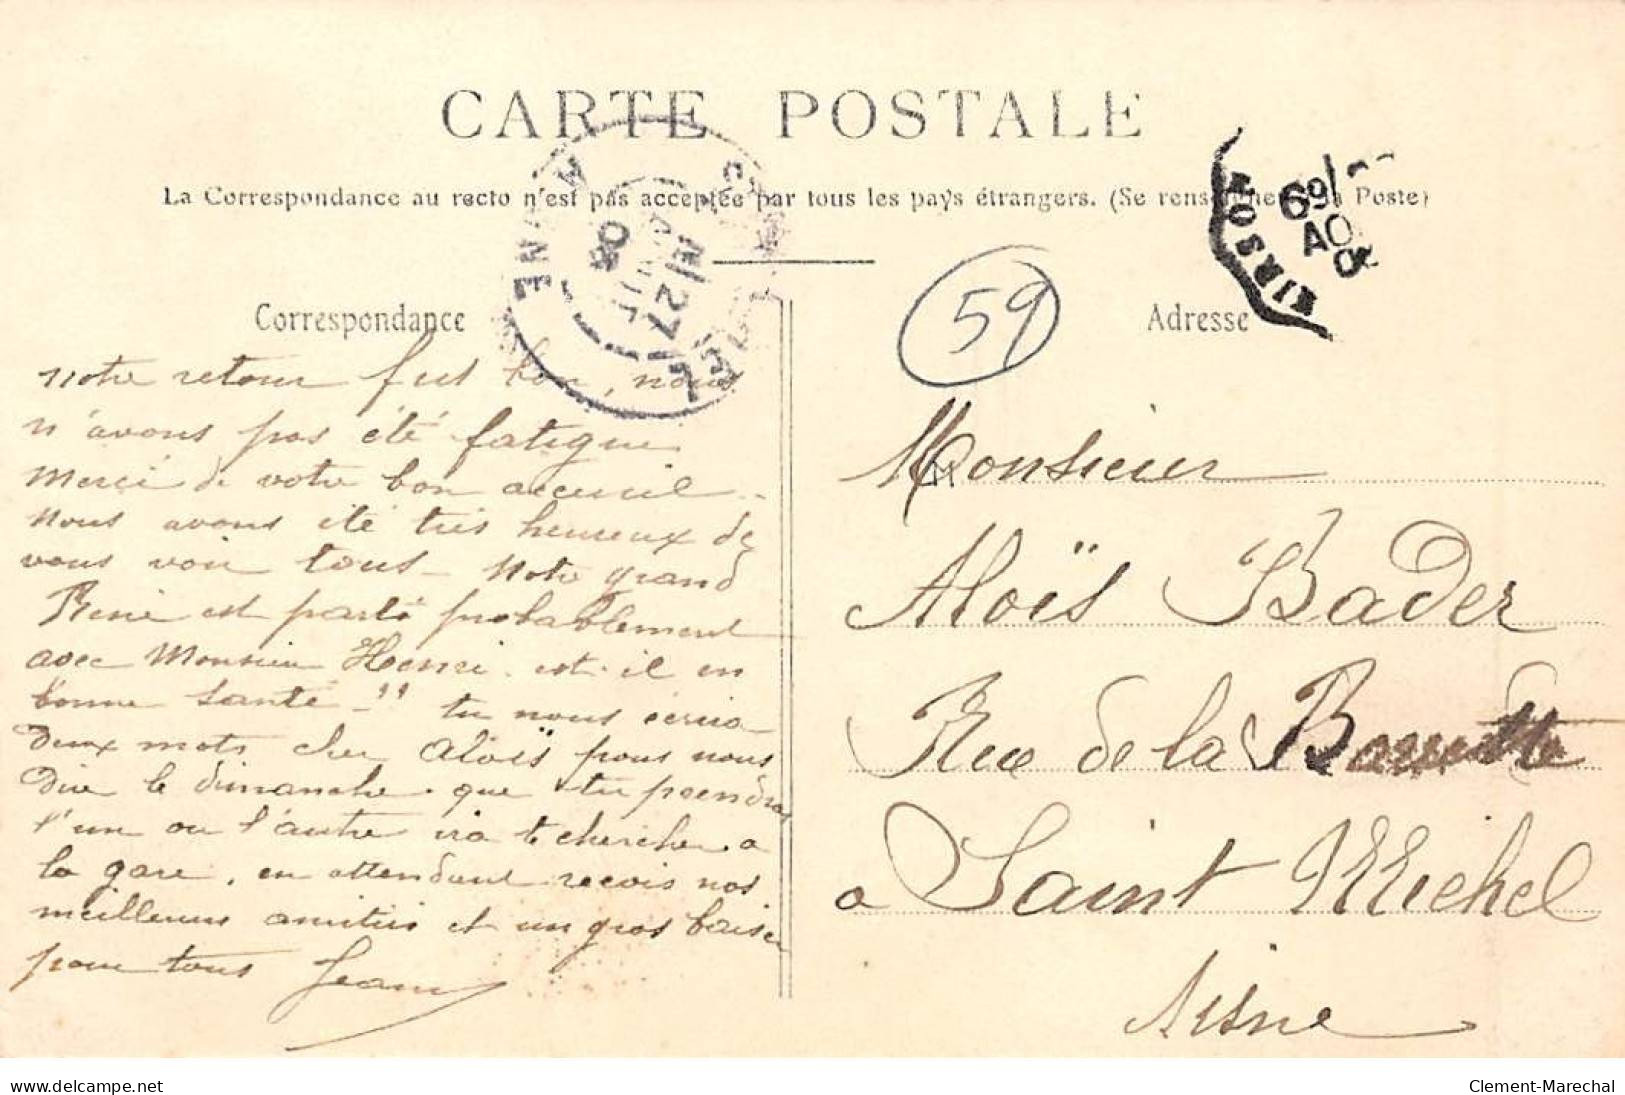 CARTE POSTALE
La Correspondance au recto n'est pas acceptée par tous les pays étrangers. (Se Poste)
Correspondance
notre retour fut bon, nous
n'avons pas été fatigue
Merci de votre bon accueil.
Nous avons été très heureux de
vous voir tous – Notre grand
René est parti probablement
avec Monsieur Henri. est-il en
bonne santé – tu nous
deux mots cher Aloïs pour nous
Dire le dimanche que tu prendra
l'un ou l'autre ira te chercher a
la gare, en attendant reçois nos
meilleures amitiés et un gros baiser
pour tous Jean
59
Adresse
Monsieur
Aloïs Bader
Rue de la
a Saint Michel
Aisne
AISNE
27
08
HIRSON
69
AO
delcampe.net
Clement-Marechal